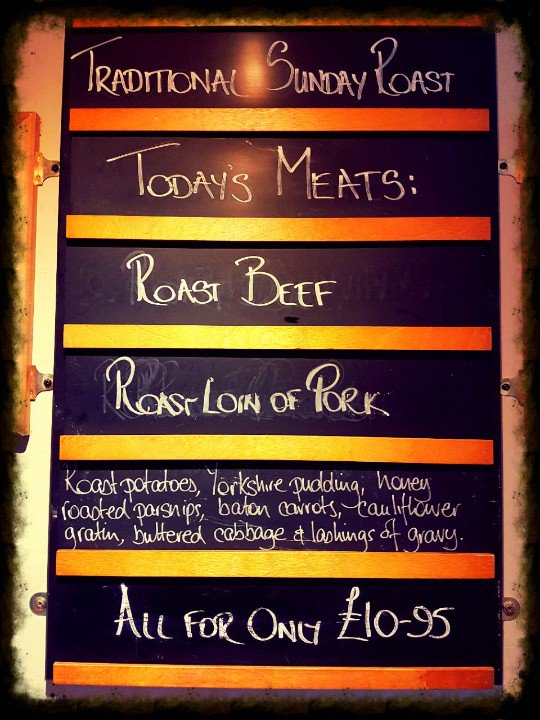 Traditional Sunday Roast
Today's Meats:
Roast Beef
Roast Loin of Pork
Roast potatoes, Yorkshire pudding, honey
roasted parsnips, baton carrots, cauliflower
gratin, buttered cabbage & lashings of gravy.
All for Only £10-95